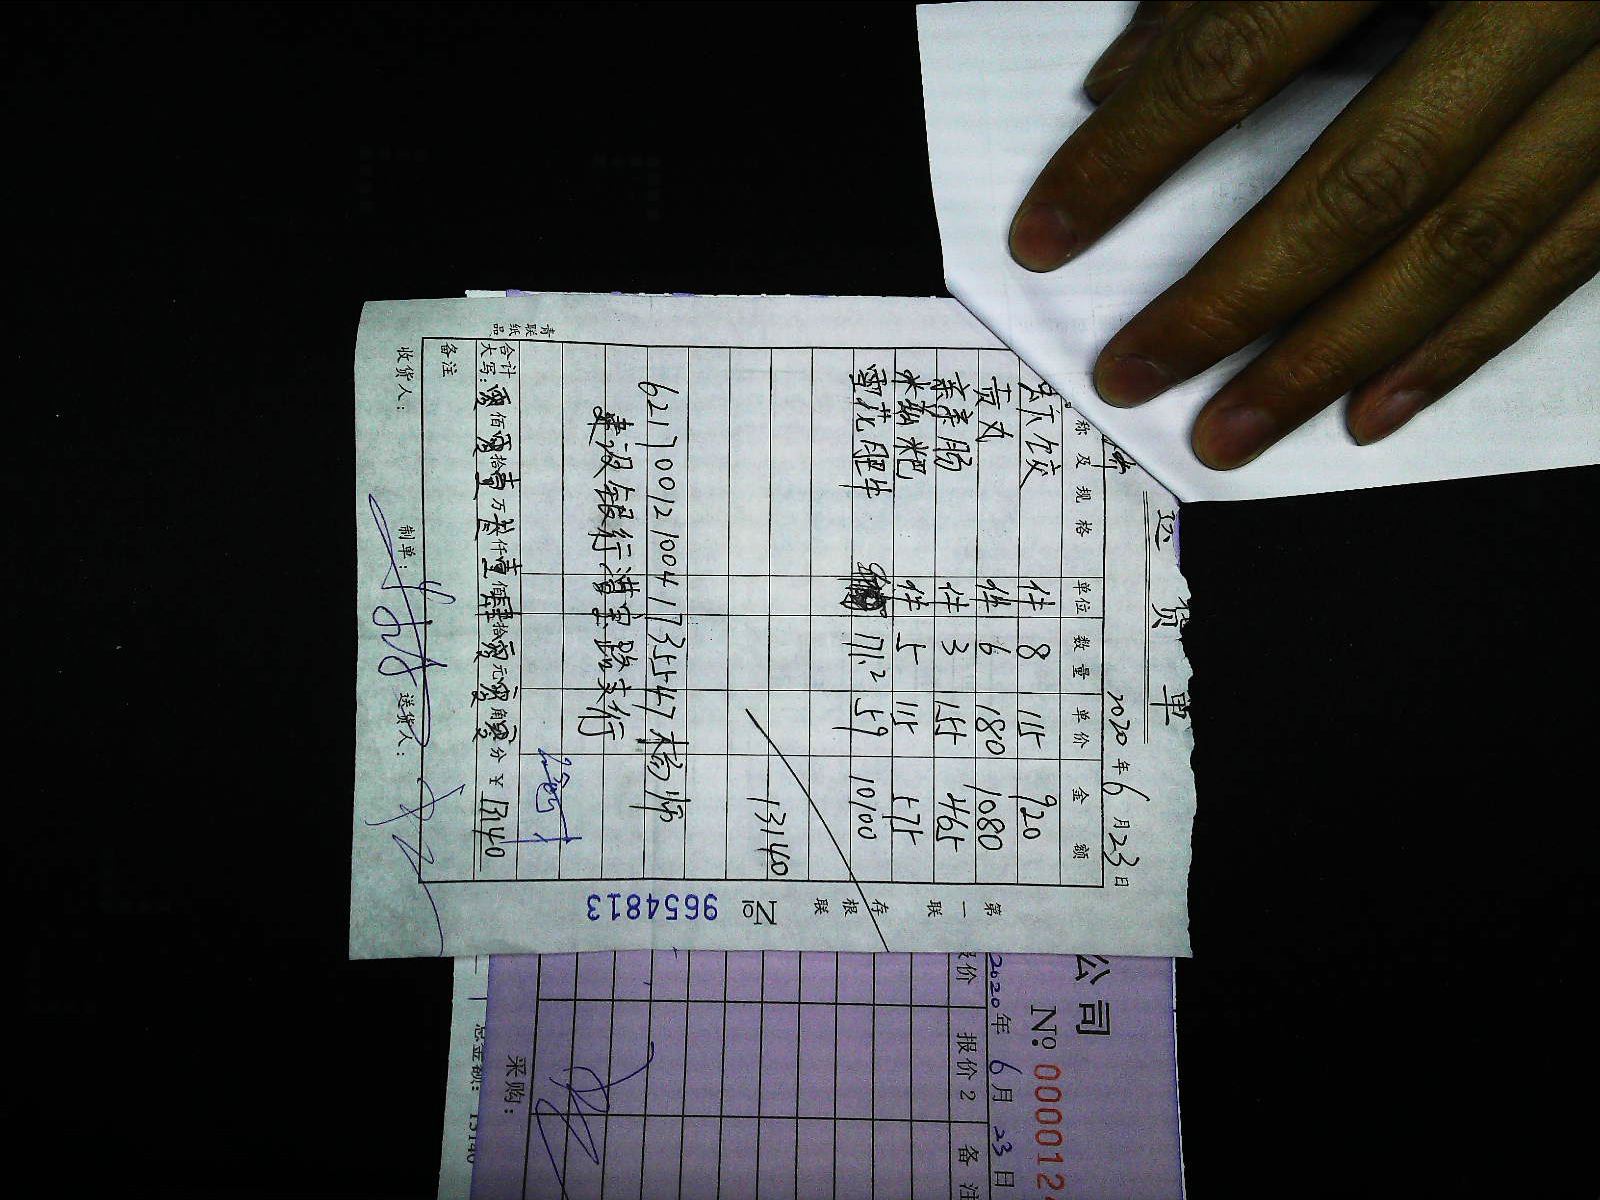 送货单
2020年6月23日
称及规格 单位 数量 单价 金额
虾饺 件 8 115 920
贡丸 件 6 180 1080
亲亲肠 件 3 155 465
糍粑 件 5 115 575
雪花肥牛 171.2 59 10100
13140
6217001210041735547 杨师
建设银行漕宝路支行
合计
大写: 零佰零拾壹万叁仟壹佰肆拾零元零角零分 ¥ 13140
备注
收货人: 制单: 送货人:
青联纸品
第一联 存根联 № 9654813
公司
№: 0000124
2020年6月23日
报价 报价2 备注
采购:
总金额: 13140